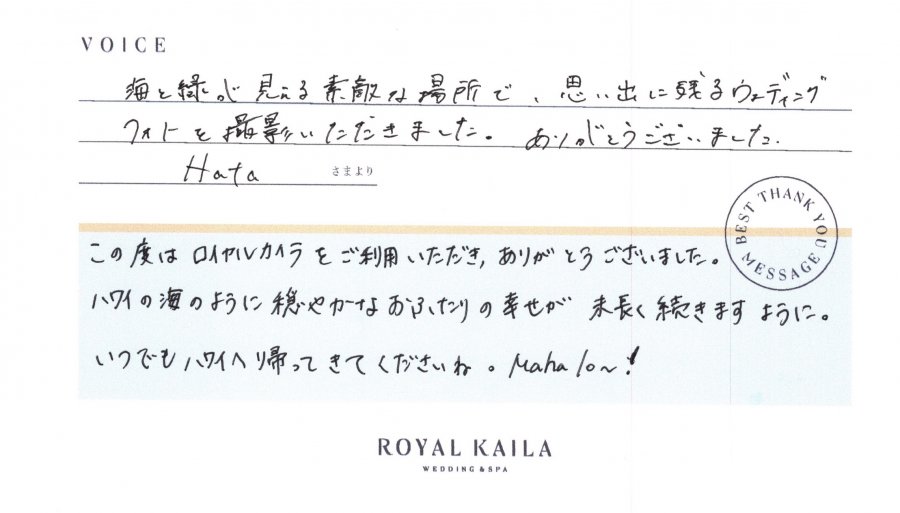 VOICE
海と緑が見える素敵な場所で、思い出に残るウェディング
フォトを撮影いただきました。ありがとうございました.
Hata さまより
BEST THANK YOU MESSAGE
この度はロイヤルカイラをご利用いただき,ありがとうございました。
ハワイの海のように穏やかなおふたりの幸せが末長く続きますように。
いつでもハワイへ帰ってきてくださいね。Mahalo〜!
ROYAL KAILA
WEDDING & SPA